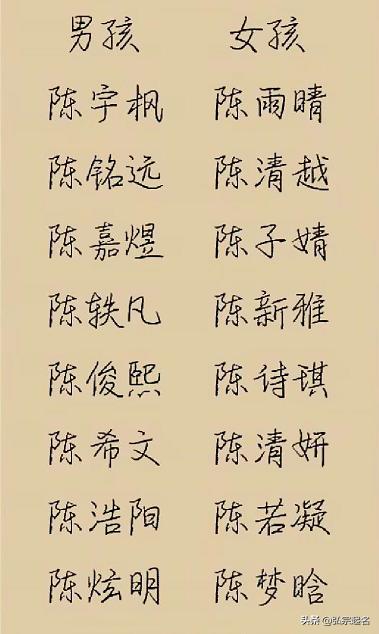 男孩 女孩
陈宇枫 陈雨晴
陈铭远 陈清越
陈嘉煜 陈子婧
陈轶凡 陈新雅
陈俊熙 陈诗琪
陈希文 陈清妍
陈浩阳 陈若凝
陈炫明 陈梦晗
头条 @弘宗起名